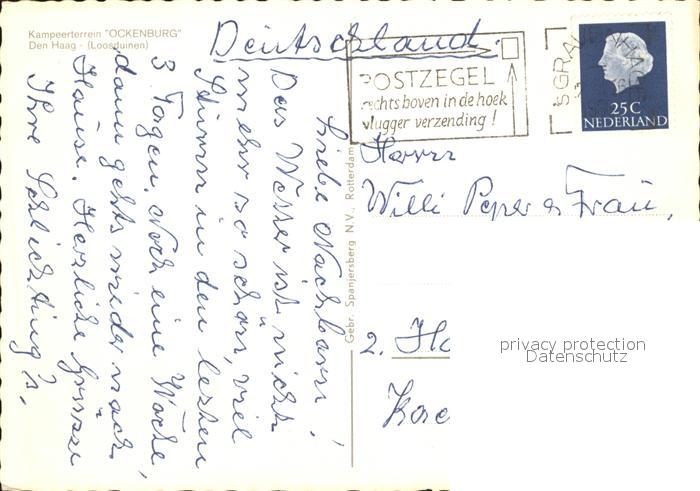 Kampeerterrein "OCKENBURG"
Den Haag - (Loosduinen)
Deutschland.
POSTZEGEL
rechts boven in de hoek
vlugger verzending!
25C
NEDERLAND
Liebe Nachbarn!
Das Wetter ist nicht
mehr so schön, viel
Sturm in den letzten
3 Tagen. Noch eine Woche,
dann gehts wieder nach
Hause. Herzliche Grüsse
Ihre Schlichting's.
Gebr. Spanjersberg N.V., Rotterdam
Herrn
Willi Peper & Frau,
2.
privacy protection
Datenschutz